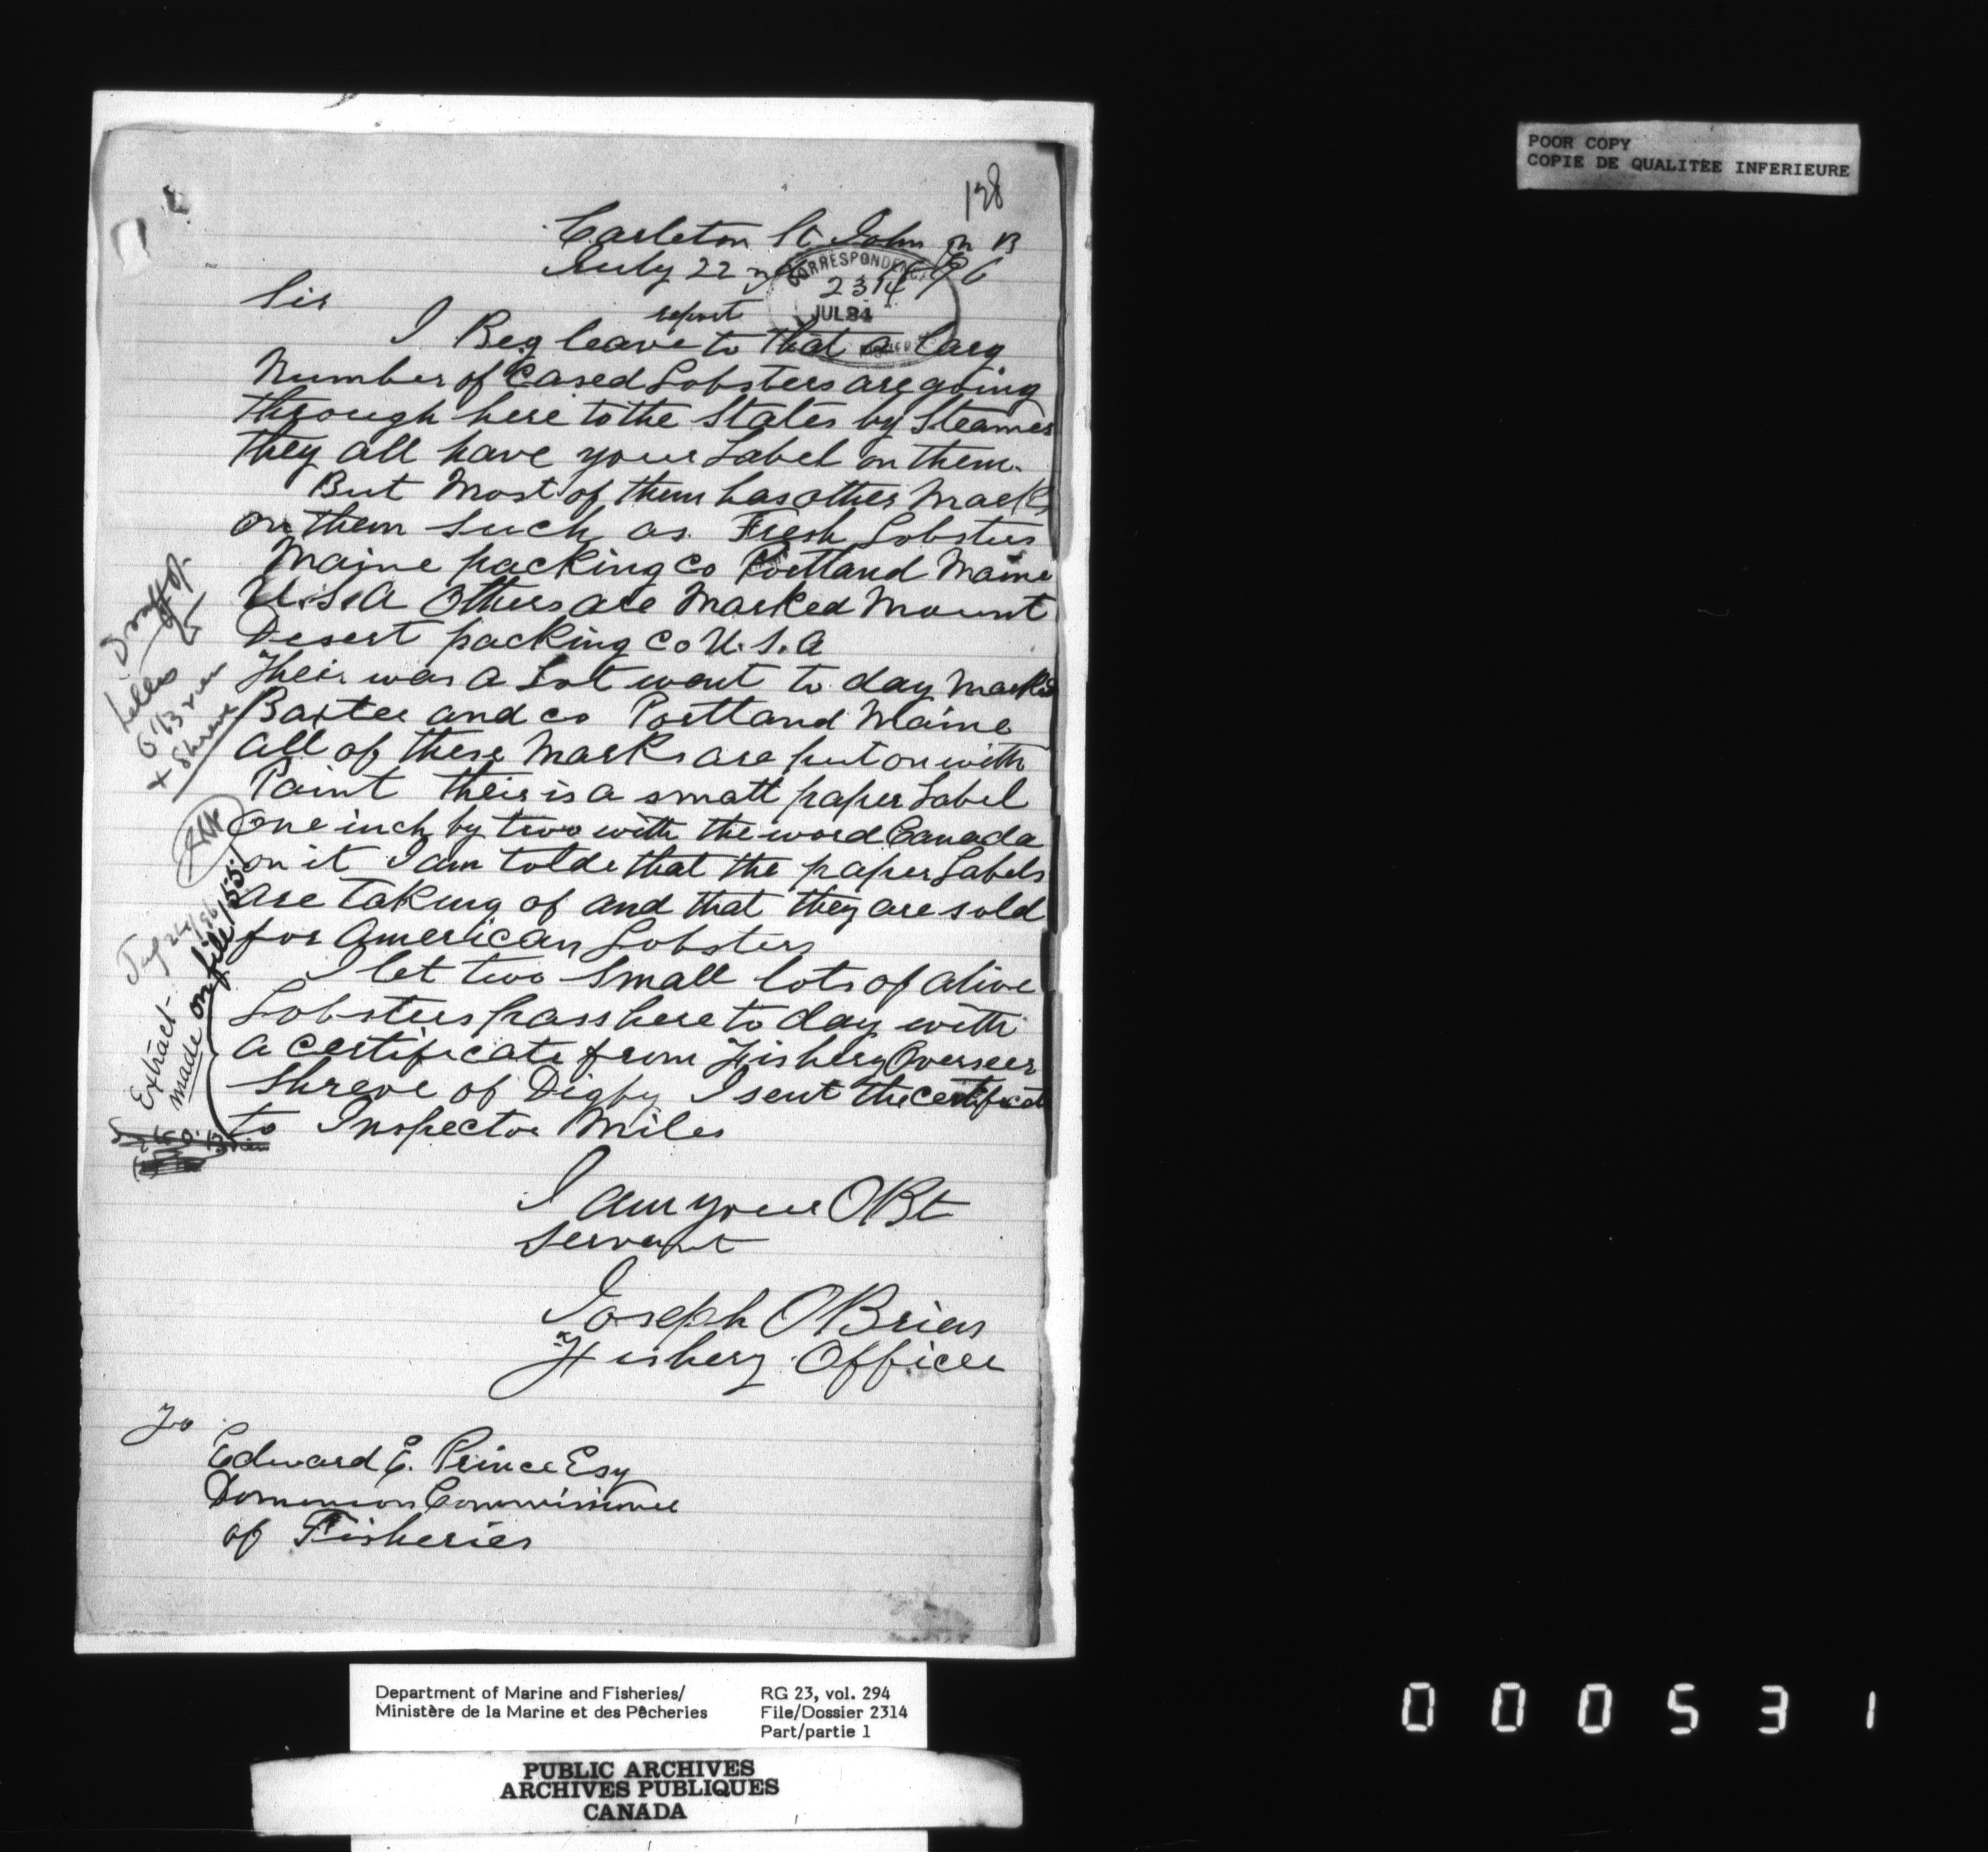 POOR COPY
COPIE DE QUALITEE INFERIEURE
128
Carleton St John N B
July 22nd 1896
CORRESPONDENCE
2314
JUL 24
Sir
report
I Beg leave to that a larg
Number of Cased Lobsters are going
through here to the States by Steamer
they all have your Label on them.
But Most of them has other Marks
on them such as Fresh Lobsters
Maine packing Co Portland Maine
U.S.A Others are Marked Mount
Desert packing Co U.S.A
Their was a Lot went to day Marked
Baxter and co Portland Maine
all of these Marks are put on with
Paint their is a small paper Label
One inch by two with the word Canada
on it I am tolde that the paper Labels
are taking of and that they are sold
for American Lobsters
I let two small lots of alive
Lobsters pass here to day with
a certificate from Fishery Overseer
Shreve of Digby I sent the certificate
to Inspector Miles
I am your OBt
Servant
Joseph OBrien
Fishery Officer
To
Edward E. Prince Esq
Dominion Commissioner
of Fisheries
Draft
Letters
O'Brien
& Shreve
July 24/96
Extract
made on file 155
Department of Marine and Fisheries/
Ministère de la Marine et des Pêcheries
RG 23, vol. 294
File/Dossier 2314
Part/partie 1
PUBLIC ARCHIVES
ARCHIVES PUBLIQUES
CANADA
000531